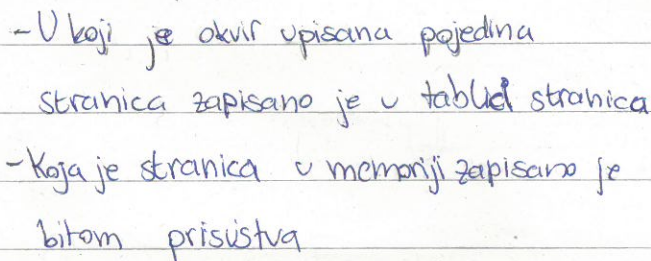 - U koji je okvir upisana pojedina
stranica zapisano je u tablici stranica
- Koja je stranica u memoriji zapisano je
bitom prisustva